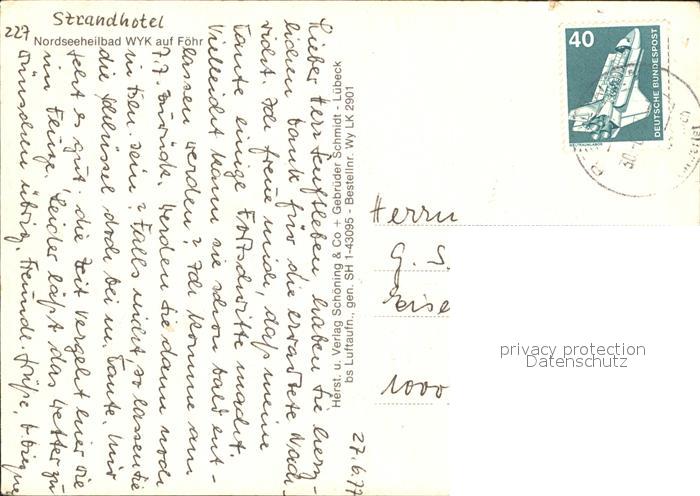 Strandhotel
227
Nordseeheilbad WYK auf Föhr
Lieber Herr haben Sie herz-
lichen Dank für die erwartete Nach-
richt. Ich freue mich, daß meine
Tante einige Fortschritte macht.
Vielleicht kann sie schon bald ent-
lassen werden? Ich komme am
7.7. zurück. Werden Sie dann noch
in sein? Falls nicht, so lassen Sie
die Schlüssel doch bei m. Tante. Mir
geht es gut. Die Zeit vergeht hier wie
im Fluge. Leider läßt das Wetter zu
wünschen übrig. Freundl. Grüße,
Herst. u. Verlag Schöning & Co + Gebrüder Schmidt - Lübeck
bs Luftaufn., gen. SH 1-43095 - Bestellnr. Wy LK 2901
27.6.77
40
DEUTSCHE BUNDESPOST
WELTRAUMLABOR
30.
Herrn
G. S.
Eise
1000
privacy protection
Datenschutz